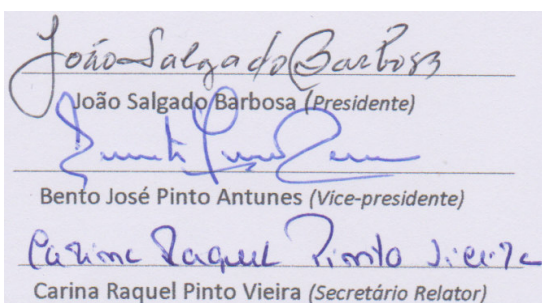 João Salgado Barbosa
João Salgado Barbosa (Presidente)
Bento José Pinto Antunes (Vice-presidente)
Carina Raquel Pinto Vieira
Carina Raquel Pinto Vieira (Secretário Relator)